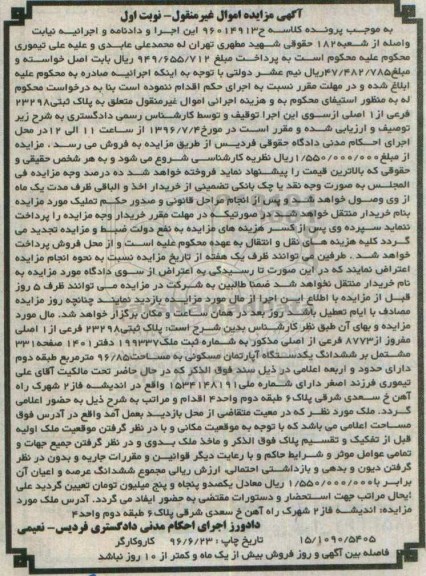 آگهی مزایده اموال غیرمنقول- نوبت اول
به موجب پرونده کلاسه ح۹۶۰۱۴۹۱۳ این اجرا و دادنامه و اجرائیه نیابت
واصله از شعبه۱۸۲ حقوقی شهید مطهری تهران له محمدعلی عابدی و علیه علی تیموری
محکوم علیه محکوم است به پرداخت مبلغ ۹۴۹/۶۵۵/۷۱۲ ریال بابت اصل خواسته و
مبلغ۴۷/۴۸۲/۷۸۵ریال نیم عشر دولتی با توجه به اینکه اجرائیه صادره به محکوم علیه
ابلاغ شده و در مهلت مقرر نسبت به اجرای حکم اقدام ننموده است بنا به درخواست محکوم
له به منظور استیفای محکوم به و هزینه اجرائی اموال غیرمنقول متعلق به پلاک ثبتی۲۳۲۹۸
فرعی از۱ اصلی ازسوی این اجرا توقیف و توسط کارشناس رسمی دادگستری به شرح زیر
توصیف و ارزیابی شده و مقرر است در مورخ۱۳۹۶/۷/۴ از ساعت ۱۱ الی ۱۲در محل
اجرای احکام مدنی دادگاه حقوقی فردیس از طریق مزایده به فروش می رسد . مزایده
از مبلغ۱/۵۵۰/۰۰۰/۰۰۰ریال نظریه کارشناسی شروع می شود و به هر شخص حقیقی و
حقوقی که بالاترین قیمت را پیشنهاد نماید فروخته خواهد شد ده درصد وجه مزایده فی
المجلس به صورت وجه نقد یا چک بانکی تضمینی از خریدار اخذ و الباقی ظرف مدت یک ماه
از وی وصول خواهد شد و پس از انجام مراحل قانونی و صدور حکم تملیک مورد مزایده
بنام خریدار منتقل خواهد شد در صورتیکه در مهلت مقرر خریدار وجه مزایده را پرداخت
ننماید سپرده وی پس از کسر هزینه های مزایده به نفع دولت ضبط و مزایده تجدید می
گردد کلیه هزینه های نقل و انتقال به عهده محکوم علیه است و از محل فروش پرداخت
خواهد شد . طرفین می توانند ظرف یک هفته از تاریخ مزایده نسبت به نحوه انجام مزایده
اعتراض نمایند که در این صورت تا رسیدگی به اعتراض از سوی دادگاه مورد مزایده به
نام خریدار منتقل نخواهد شد ضمنا طالبین به شرکت در مزایده می توانند ظرف ۵ روز
قبل از مزایده با اطلاع این اجرا از مال مورد مزایده بازدید نمایند چنانچه روز مزایده
مصادف با ایام تعطیل باشد روز بعد در همان ساعت و مکان برگزار خواهد شد. مال مورد
مزایده و بهای آن طبق نظر کارشناس بدین شرح است: پلاک ثبتی۲۳۲۹۸ فرعی از۱ اصلی
مفروز از۸۷۷۳ فرعی از اصلی مذکور به شماره ثبت ملک۱۹۹۳۳۷ دفتر۱۴۰۱ صفحه۳۳۱
مشتمل بر ششدانگ یکدستگاه آپارتمان مسکونی به مساحت۹۶/۸۵ مترمربع طبقه دوم
دارای حدود و اربعه اعلامی در ذیل سند فوق الذکر که در حال حاضر تحت مالکیت آقای علی
تیموری فرزند اصغر دارای شماره ملی۱۵۳۴۱۴۸۱۹۱ واقع در اندیشه فاز۲ شهرک راه
آهن خ سعدی شرقی پلاک۶ طبقه دوم واحد۴ اقدام و مراتب به شرح ذیل به حضور اعلامی
گردد. ملک مورد نظر که در معیت متقاضی از محل بازدید بعمل آمد واقع در آدرس فوق
مساحت اعلامی می باشد که با توجه به موقعیت مکانی و با در نظر گرفتن موقعیت ملک اولیه
قبل از تفکیک و تقسیم پلاک فوق الذکر و ماخذ ملک بدوی و در نظر گرفتن جمیع جهات و
تمامی عوامل موثر و شرایط حاکم و با رعایت دیگر قوانین و مقررات جاریه و بدون در نظر
گرفتن دیون و بدهی و بازداشتی احتمالی ارزش ریالی مجموع ششدانگ عرصه و اعیان آن
برابر با۱/۵۵۰/۰۰۰/۰۰۰ ریال معادل یکصدو پنجاه و پنج میلیون تومان تعیین گردید علی
ایحال مراتب جهت استحضار و دستورات مقتضی به حضور ایفاد می گردد. آدرس ملک مورد
مزایده: اندیشه فاز۲ شهرک راه آهن خ سعدی شرقی پلاک۶ طبقه دوم واحد۴
دادورز اجرای احکام مدنی دادگستری فردیس- نعیمی
۱۵/۱۰۹۰/۵۴۰۵ تاریخ چاپ : ۹۶/۶/۲۳ کاروکارگر
فاصله بین آگهی و روز فروش بیش از یک ماه و کمتر از ۱۰ روز نباشد